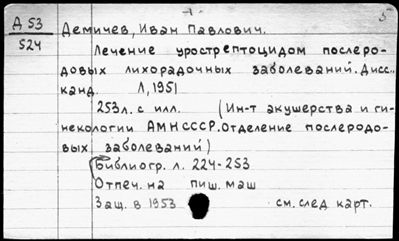 -1-
5
Д 53
524
Демичев, Иван Павлович.
Лечение урострептоцидом послеро-
довых лихорадочных заболеваний. Дисс..
канд. Л, 1951
253л. с илл. (Ин-т акушерства и ги-
некологии АМНСССР. Отделение послеродо-
вых заболеваний)
Библиогр. л. 224-253
Отпеч. на пиш. маш
Защ. в 1953 см. след карт.